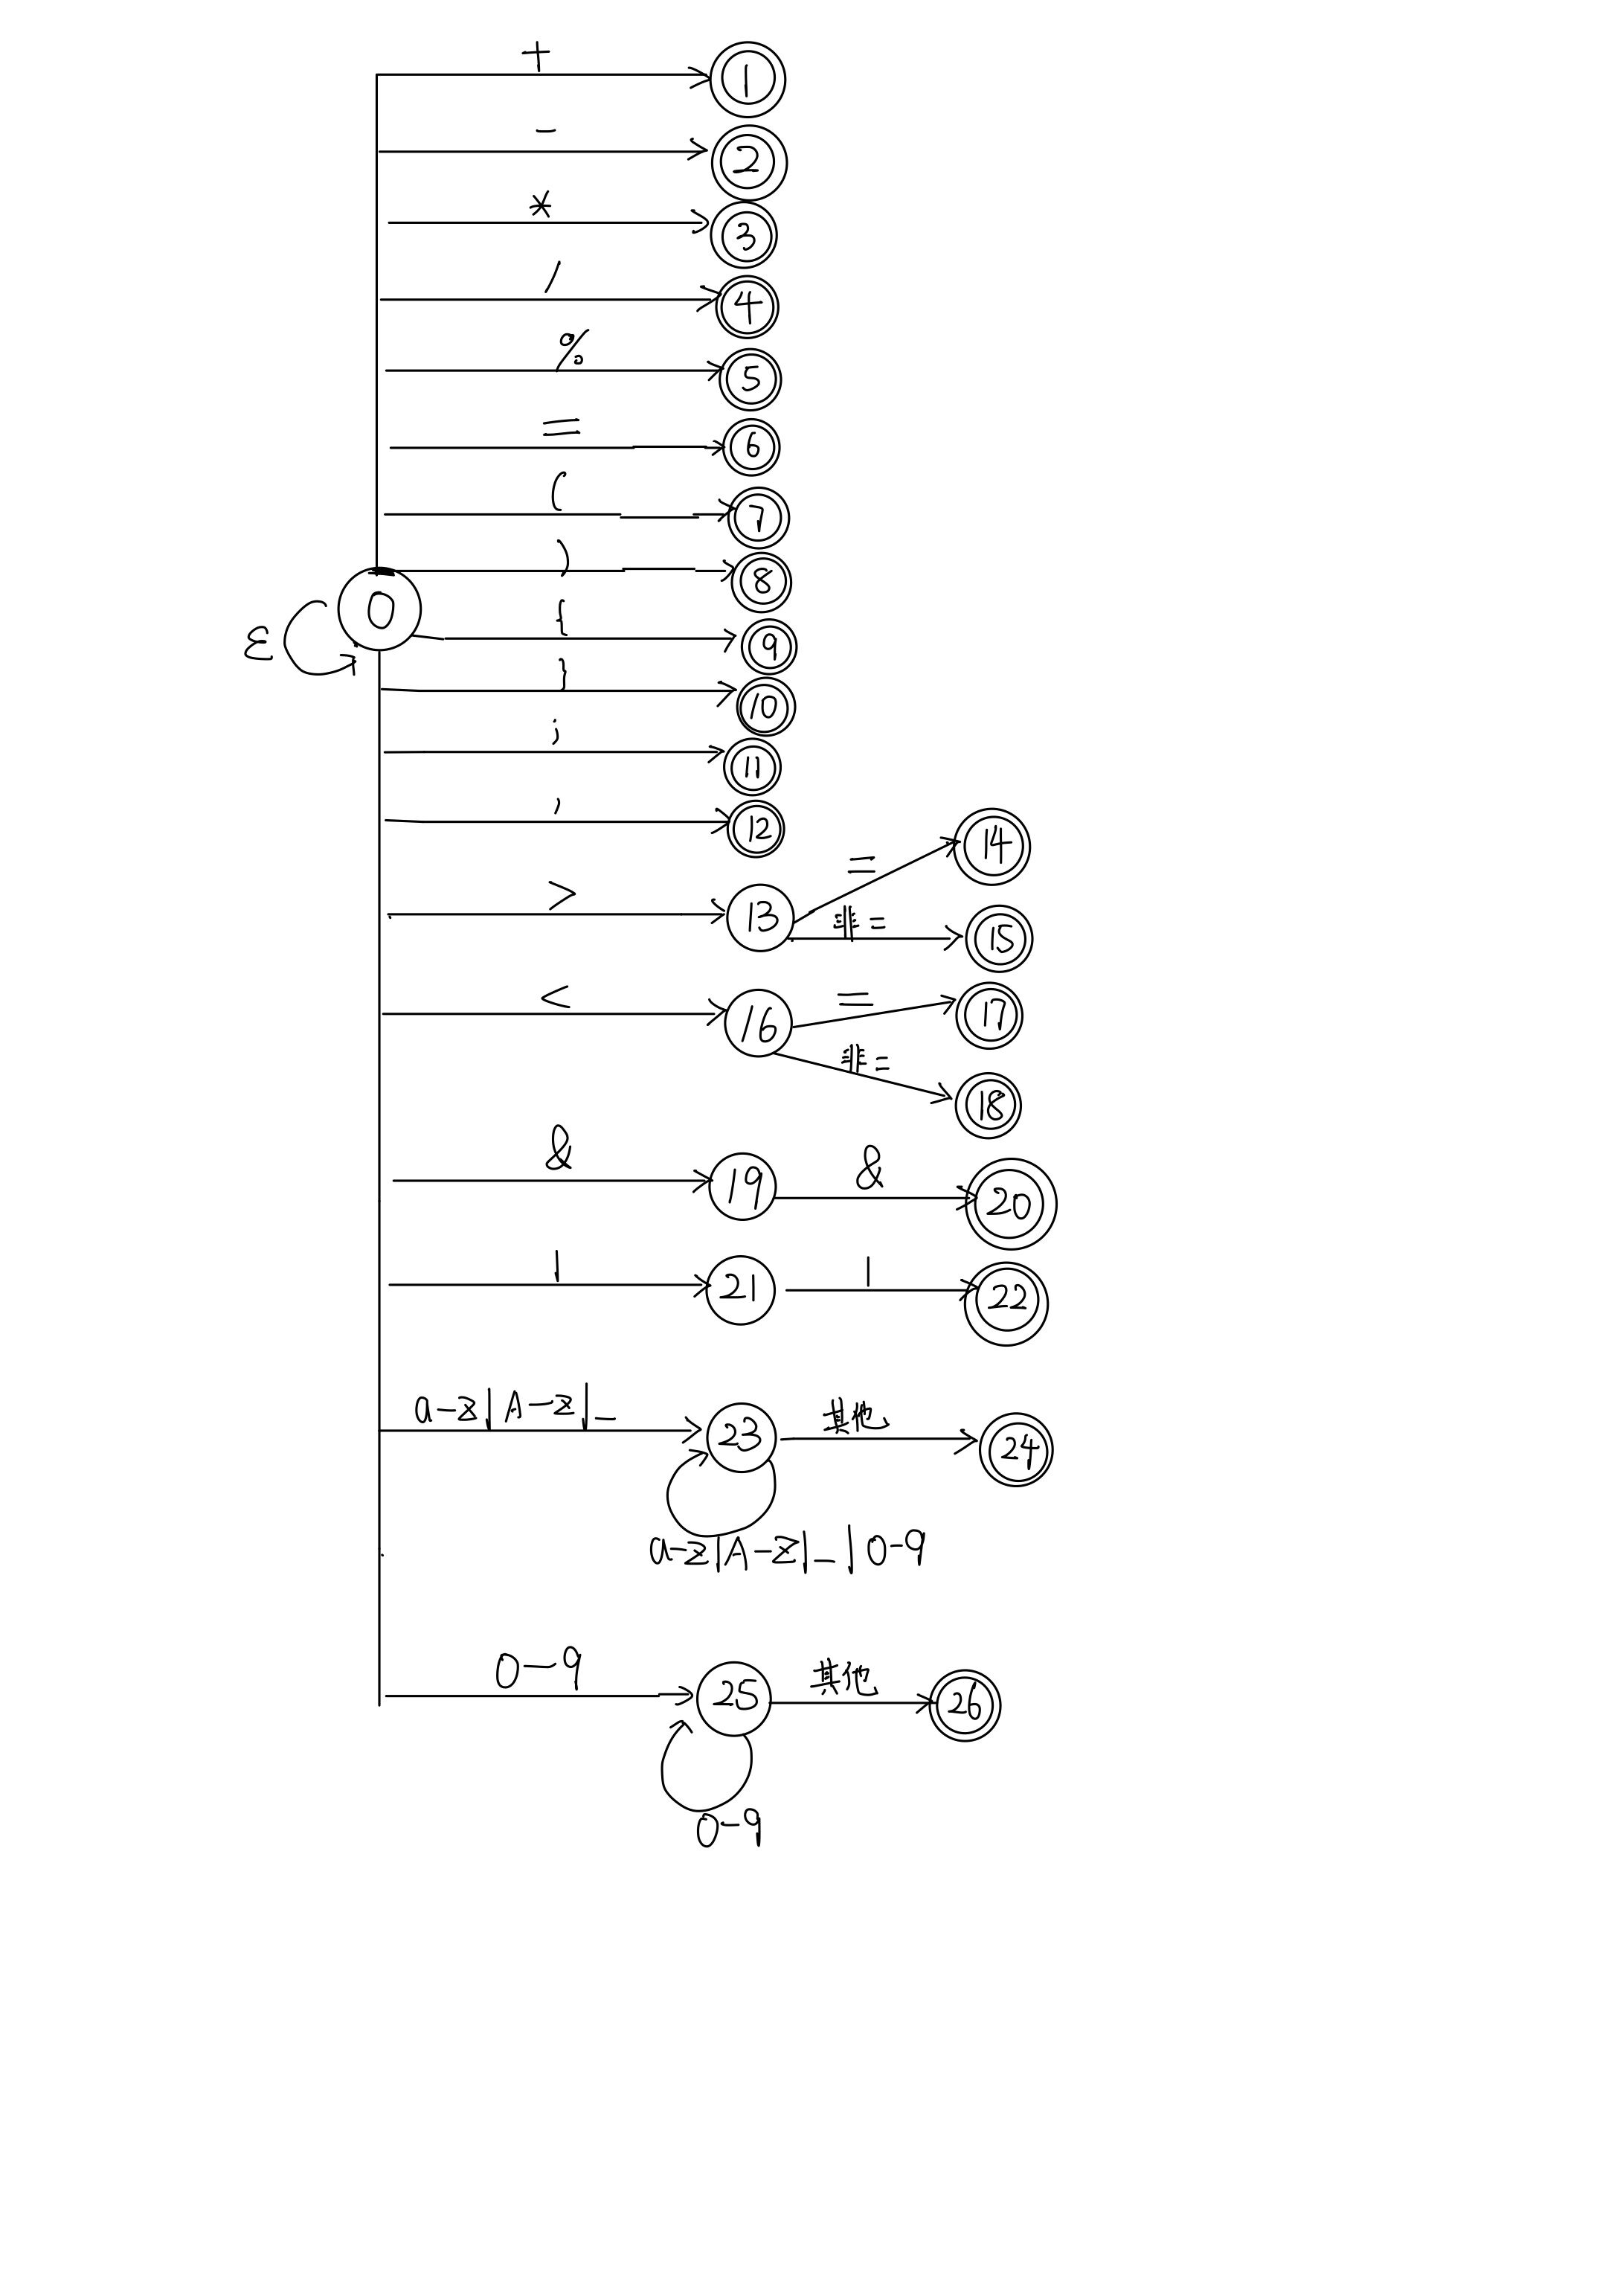 +
1
-
2
*
3
/
4
%
5
=
6
(
7
)
8
0
ε
{
9
}
10
;
11
,
12
=
14
>
13
非=
15
<
16
=
17
非=
18
&
19
&
20
|
21
|
22
a-z|A-z|_
23
其他
24
a-z|A-z|_|0-9
0-9
25
其他
26
0-9